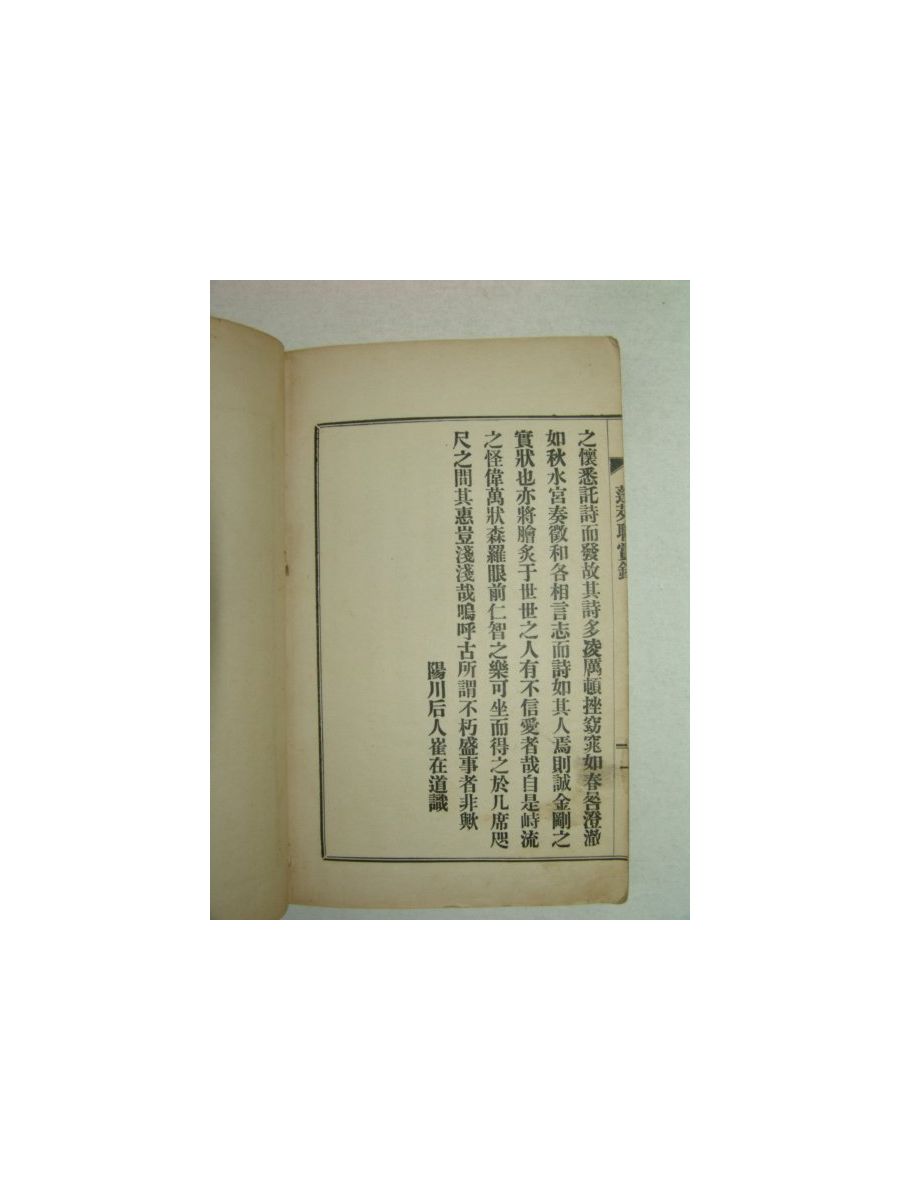 之懷悉託詩而發故其詩多凌厲頓挫窈窕如春嵒澄澈
如秋水宮奏徵和各相言志而詩如其人焉則誠金剛之
實狀也亦將膾炙于世世之人有不信愛者哉自是峙流
之怪偉萬狀森羅眼前仁智之樂可坐而得之於几席咫
尺之間其惠豈淺淺哉嗚呼古所謂不朽盛事者非歟
陽川后人崔在道識
蓬萊聯賞錄
一